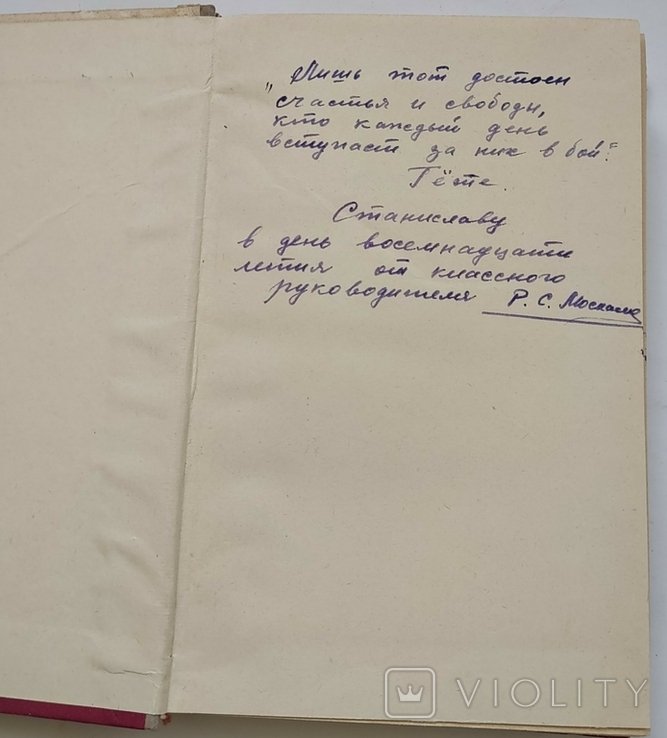 „Лишь тот достоен
счастья и свободы,
кто каждый день
вступает за них в бой“
Гёте.
Станиславу
в день восемнадцати
летия от классного
руководителя Р. С.
VIOLITY